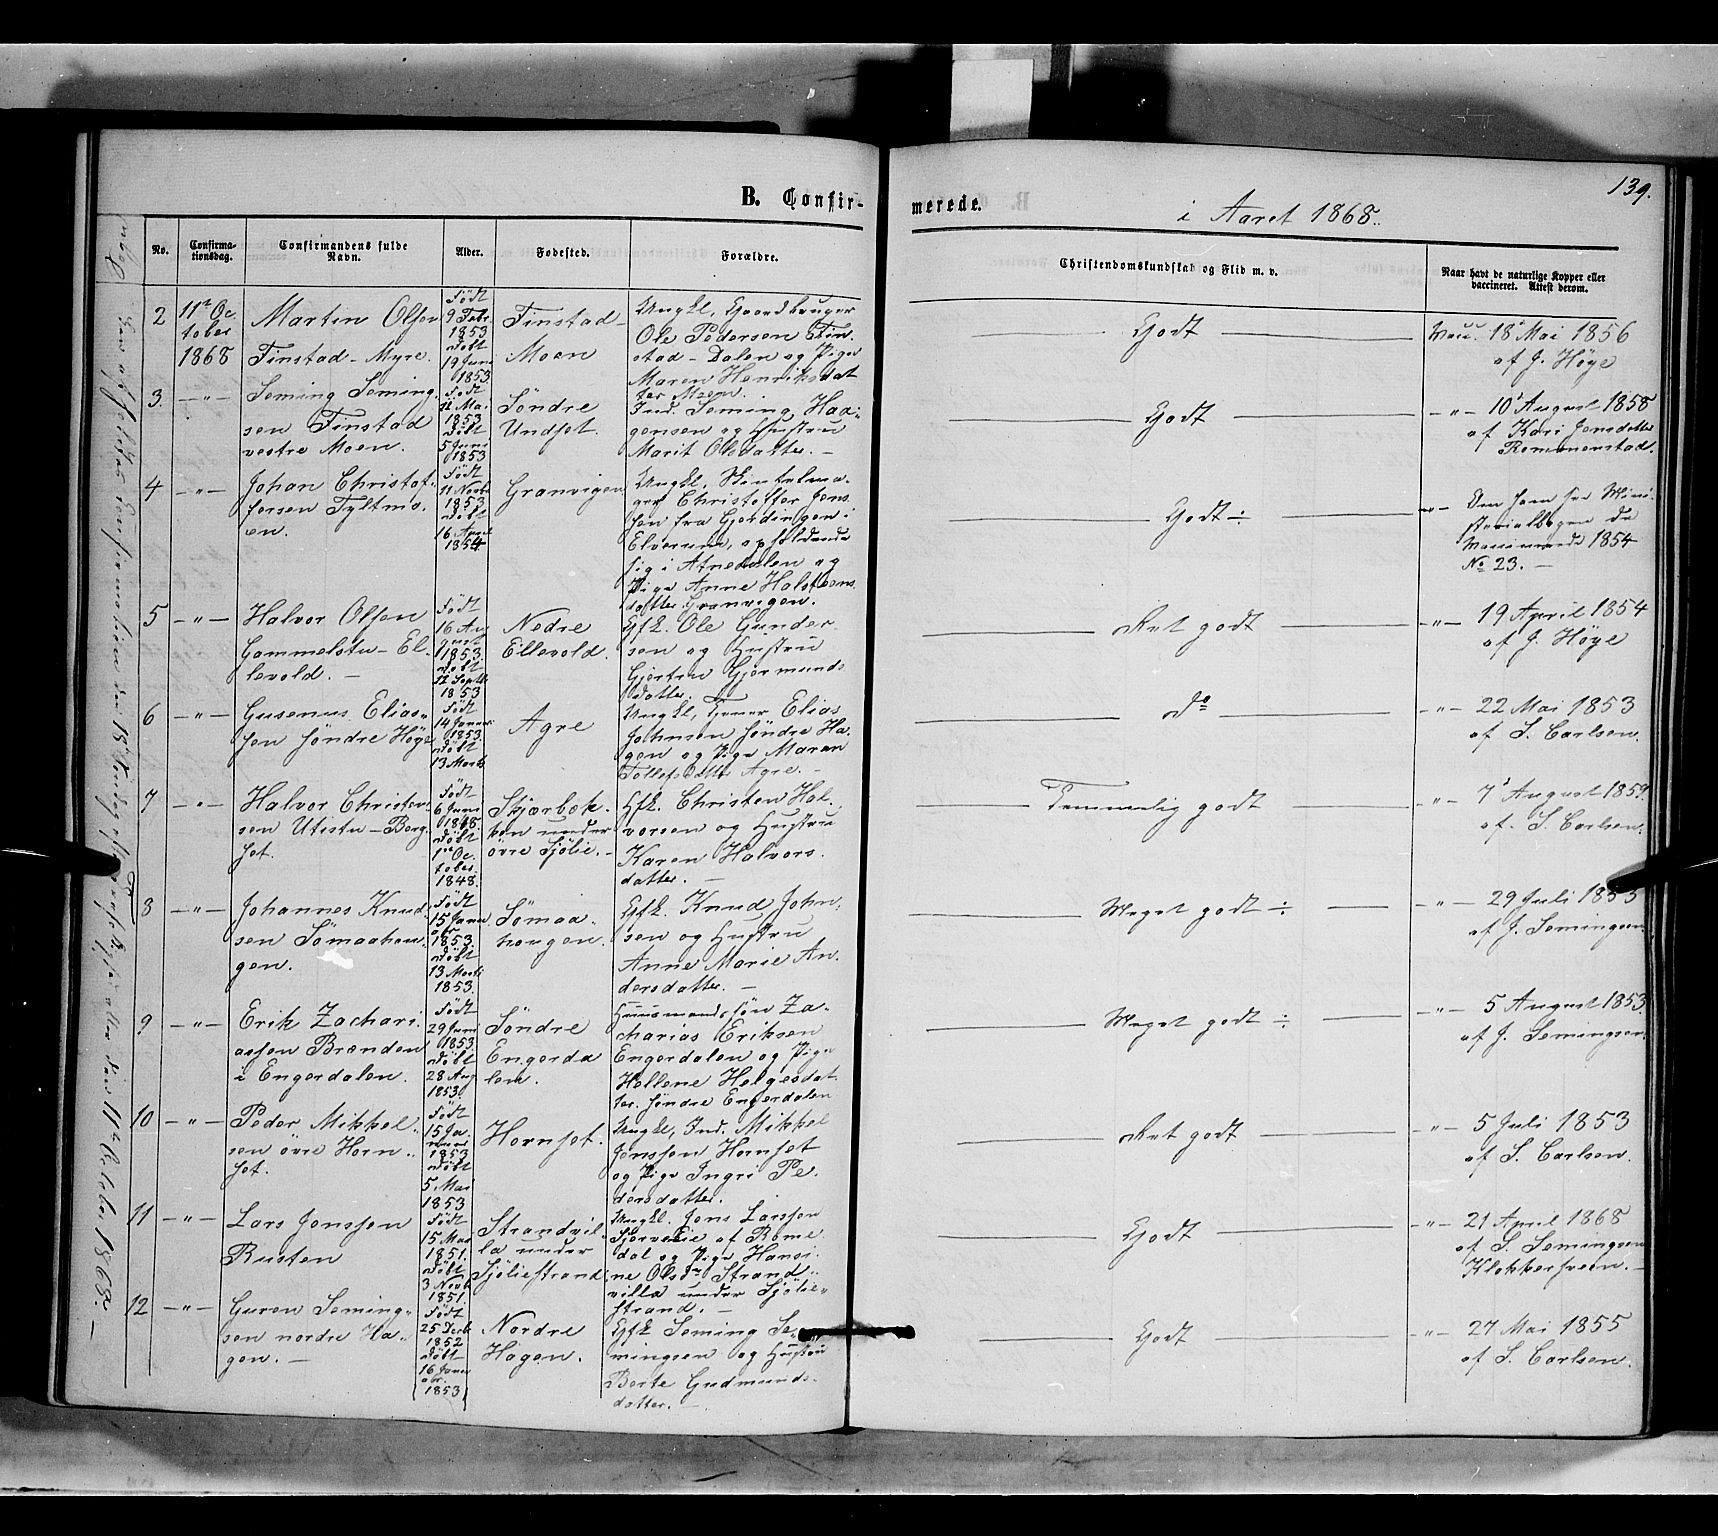 139.
B. Confir-
merede.
i Aaret 1868.
No.
Confirma-
tionsdag.
Confirmandens fulde
Navn.
Alder.
Fødested.
Forældre.
Christendomskundskab og Flid m. v.
Naar havt de naturlige Kopper eller
vaccineret. Attest derom.
2
11te Oc
tober
1868
Martin Olsen
Finstad-Myre.
Født
9 Febr
1853
Døbt
19 Juni
1853.
Finstad-
Moen
Ungkl, Gaardbruger
Ole Pedersen Fin
stad-Dalen og Pige
Maren Henriksdat
ter Moen.
Godt
Vacc. 18 Mai 1856
af J. Høye
3.
-"-
Seming Seming
sen Finstad
vestre Moen.
Født
12 Mai
1853
Døbt
5 Juni
1853
Søndre
Undset.
Ind. Seming Haa-
gensen og Hustru
Marit Olsdatter. -
Godt
-"- 10 August 1858
af Kari Jonsdatter
Rommenstad.
4
-"-
Johan Christof
fersen Tyltmo
en.
Født
11 Novb
1853
Døbt
16 April
1854
Granvigen
Ungkl.
Christoffer Jons
sen fra Gjerdingen i
Elverum, opholdende
sig i Atnedalen og
Pige Anne Halsteens
datter Granvigen.
Godt ÷
-"- Den som for Mini
sterialbogen
1854
No 23. -
5
-"-
Halvor Olsen
Gammelstu-El
levold. -
Født
16 Au
gust
1853
Døbt
12 Septb
1853
Nedre
Ellevold.
Gfk. Ole Gunder
sen og Hustru
Gjertru Gjermunds
datter.
Ret godt
-"- 19 April 1854
af J. Høye
6
-"-
Gusenus Elias-
sen søndre Høye
Født
14 Januar
1853
Døbt
13 Marts
Agre
Ungkl, Elias
Johnsen søndre Ha
gen og Pige Maren
Tollefsdatter Agre. -
do
-"- 22 Mai 1853
af S. Carlsen.
7
-"-
Halvor Christen
sen Utistu-Berg
set.
Født
6 Juni
1848
Døbt
1ste Oc
tober
1848.
Skjærbæk
ken under
øvre Sjølie. -
Gfk. Christen Hal
vorsen og Hustru
Karen Halvors
datter. -
Temmelig godt
-"- 7 August 1859
af S. Carlsen.
8
-"-
Johannes Knud
sen Sømaahau
gen.
Født
15 Janu
ar
1853.
Døbt
13 Marts
1853.
Sømaa
haugen.
Gfk. Knud John
sen og Hustru
Anne Marie An
dersdatter. -
Meget godt ÷
-"- 29 Juli 1853
af J. Semingsen
9
-"-
Erik Zachari
assen Brænden
i Engerdalen.
Født
29 Juni
1853
Døbt
28 Aug
1853.
Søndre
Engerda
len.
Huusmandssøn Za
charias Eriksen
Engerdalen og Pige
Hellene Helgesdat
ter søndre Engerdalen
Meget godt ÷
-"- 5 August 1853.
af J. Semingsen
10
-"-
Peder Mikkel
sen øvre Horn
set.
Født
15 Ja
nuar
1853
Døbt
5 Mai
1853
Hornset.
Ungkl, Ind. Mikkel
Jenssen Hornset
og Pige Ingri Pe
dersdatter.
Ret godt
-"- 5 Juli 1853
af S. Carlsen.
11
-"-
Lars Jonssen
Rusten
Født
15 Mai
1851.
Døbt
3 Novb
1851
Strandvil
la under
Sjøliestrand
Ungkl. Jons Larssen
af Rome
dal og Pige Hansi
ne Olsdr Strand
villa under Sjølie-
strand. -
Godt
-"- 21 April 1868
af S. Semingsen
Klokkersveen. -
12
-"-
Guren Seming
sen nordre Ha
gen. -
Født
25 Decb
1852
Døbt
16 Janu
ar.
1853
Nordre
Hagen.
Gfk Seming Se
mingsen og Hustru
Berte Gudmunds
datter. -
Godt
-"- 27 Mai 1855
af S. Carlsen.